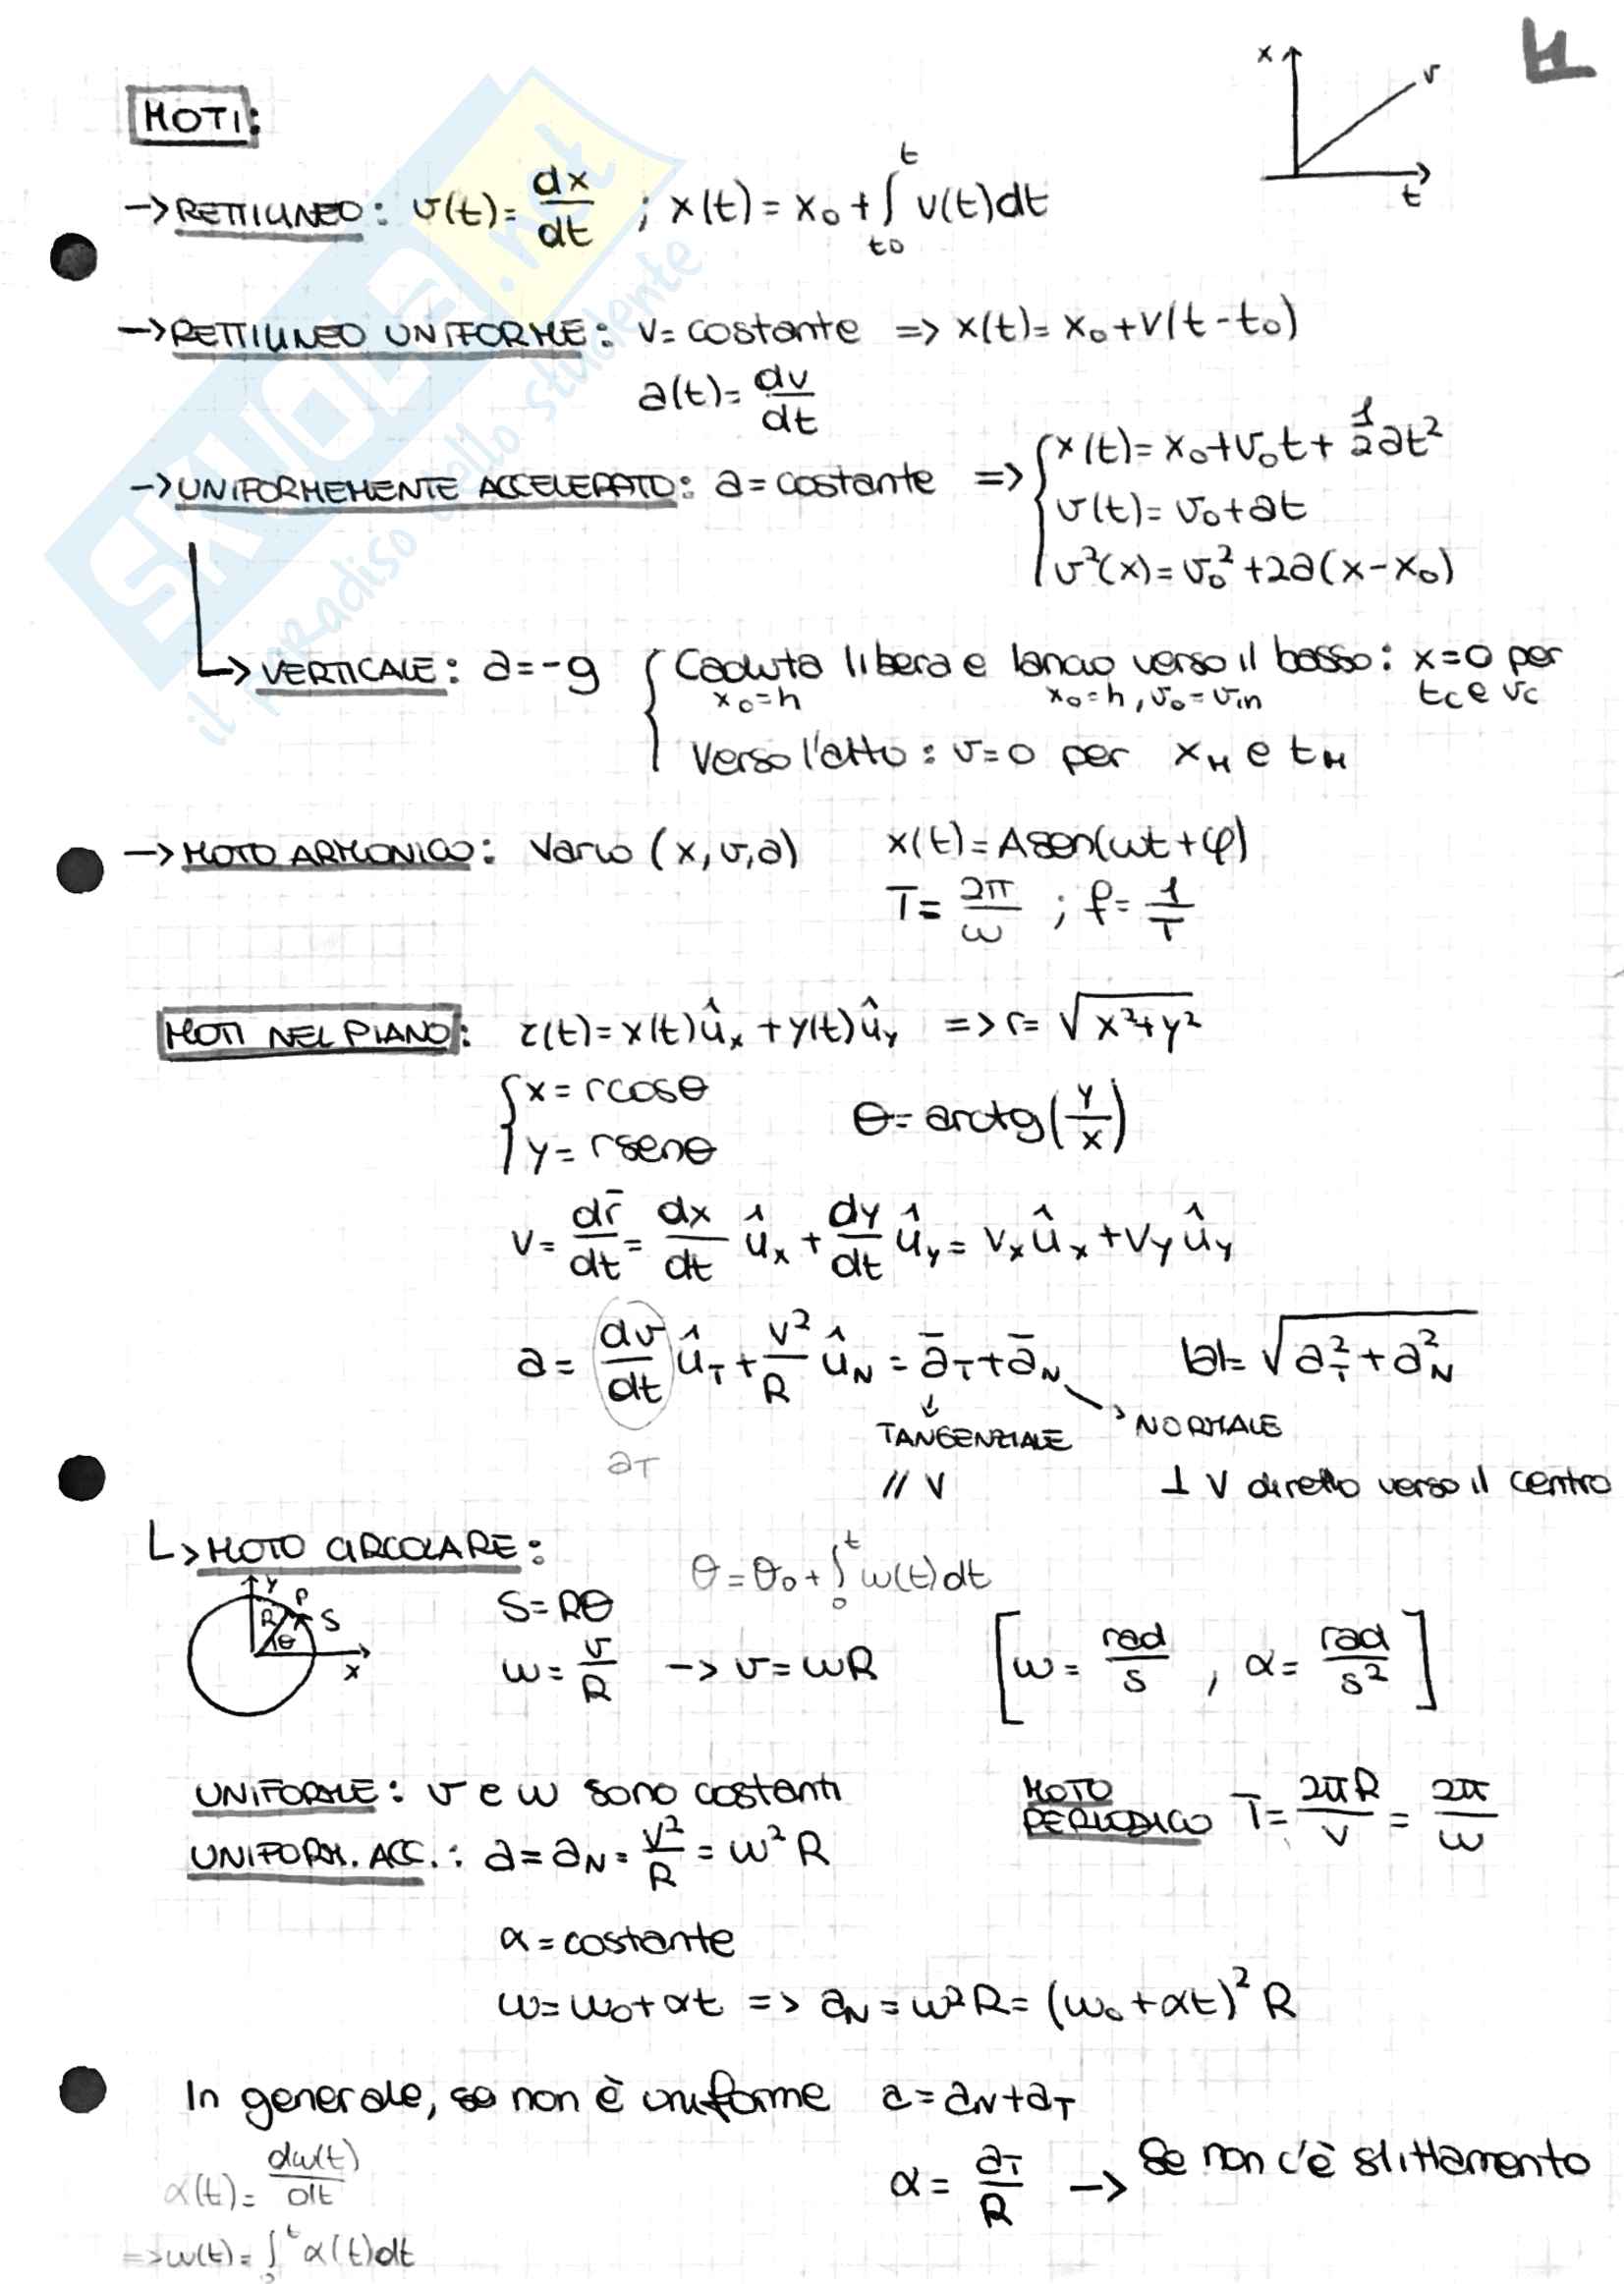 1
x
v
t
MOTI:
→ RETTILINEO: v(t) = dx/dt ; x(t) = x₀ + ∫_{t0}^{t} v(t)dt
→ RETTILINEO UNIFORME: v = costante => x(t) = x₀ + v(t - t₀)
a(t) = dv/dt
→ UNIFORMEMENTE ACCELERATO: a = costante => { x(t) = x₀ + v₀t + 1/2 at²
v(t) = v₀ + at
v²(x) = v₀² + 2a(x - x₀)
↳ VERTICALE: a = -g { Caduta libera e lancio verso il basso: x=0 per
x₀ = h x₀ = h, v₀ = v_in t_c e v_c
Verso l'alto: v=0 per x_M e t_M
→ MOTO ARMONICO: Vario (x, v, a) x(t) = A sen(ωt + φ)
T = 2π/ω ; f = 1/T
MOTI NEL PIANO: r(t) = x(t)û_x + y(t)û_y => r = √(x² + y²)
{ x = rcosθ
y = rsenθ θ = arctg(y/x)
v = dr̄/dt = dx/dt û_x + dy/dt û_y = v_x û_x + v_y û_y
a = dv/dt û_T + v²/R û_N = ā_T + ā_N |a| = √(a_T² + a_N²)
a_T
TANGENZIALE → NORMALE
// v ⊥ v diretto verso il centro
↳ MOTO CIRCOLARE: θ = θ₀ + ∫_0^t ω(t)dt
y P R S θ x
S = Rθ
ω = v/R → v = ωR [ω = rad/s , α = rad/s²]
UNIFORME: v e ω sono costanti MOTO PERIODICO T = 2πR/v = 2π/ω
UNIFORM. ACC.: a = a_N = v²/R = ω²R
α = costante
ω = ω₀ + αt => a_N = ω²R = (ω₀ + αt)² R
In generale, se non è uniforme a = a_N + a_T
α(t) = dω(t)/dt α = a_T/R → Se non c'è slittamento
=> ω(t) = ∫_0^t α(t)dt
SKUOLA.net
il paradiso dello studente